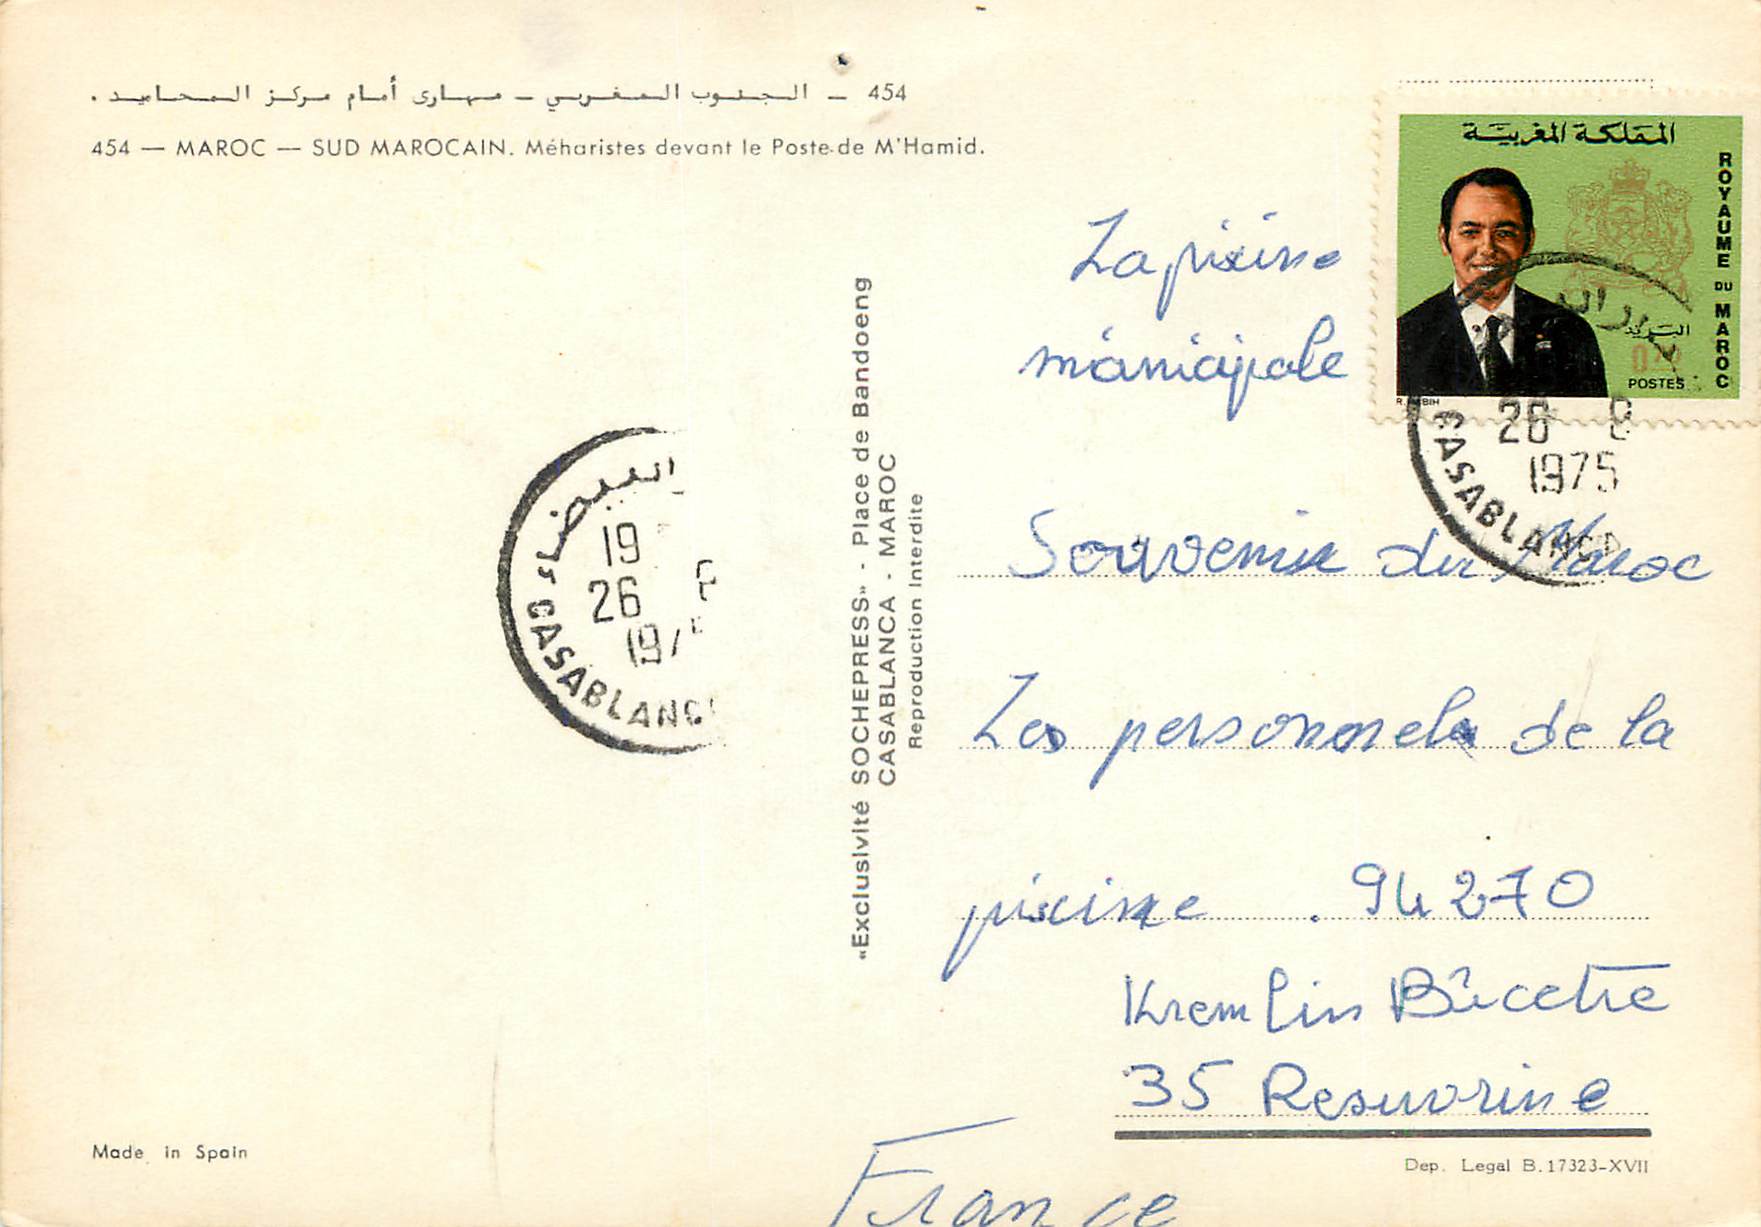 454 — الجنوب المغربي — مهارى أمام مركز المحاميد .
454 — MAROC — SUD MAROCAIN. Méharistes devant le Poste de M'Hamid.
المملكة المغربية
ROYAUME DU MAROC
البريد
POSTES
26 8
1975
CASABLANCA
البيضاء
19
26
197
CASABLANC
«Exclusivité SOCHEPRESS» - Place de Bandoeng
CASABLANCA - MAROC
Reproduction Interdite
La piscine
municipale
Souvenir du Maroc
Les personnels de la
piscine . 94270
Kremlin Bicetre
35
France
Made in Spain
Dep. Legal B. 17323-XVII